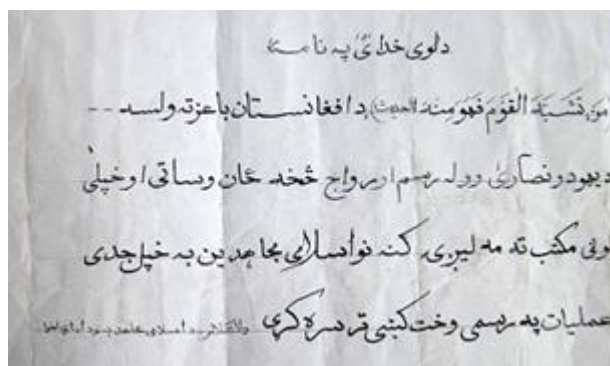 دلوی خدائ په نامه
من تشبه القوم فهو منه (الحدیث) د افغانستان با عزته ولسه --
دیهود و نصاریٰ دود له رسم او رواج څخه ځان وساتی او خپلي
لوڼي مکتب ته مه لیږی. کنه نو اسلامي مجاهدین به خپل جدي
عملیات په رسمي وخت کښي تر سره کړي